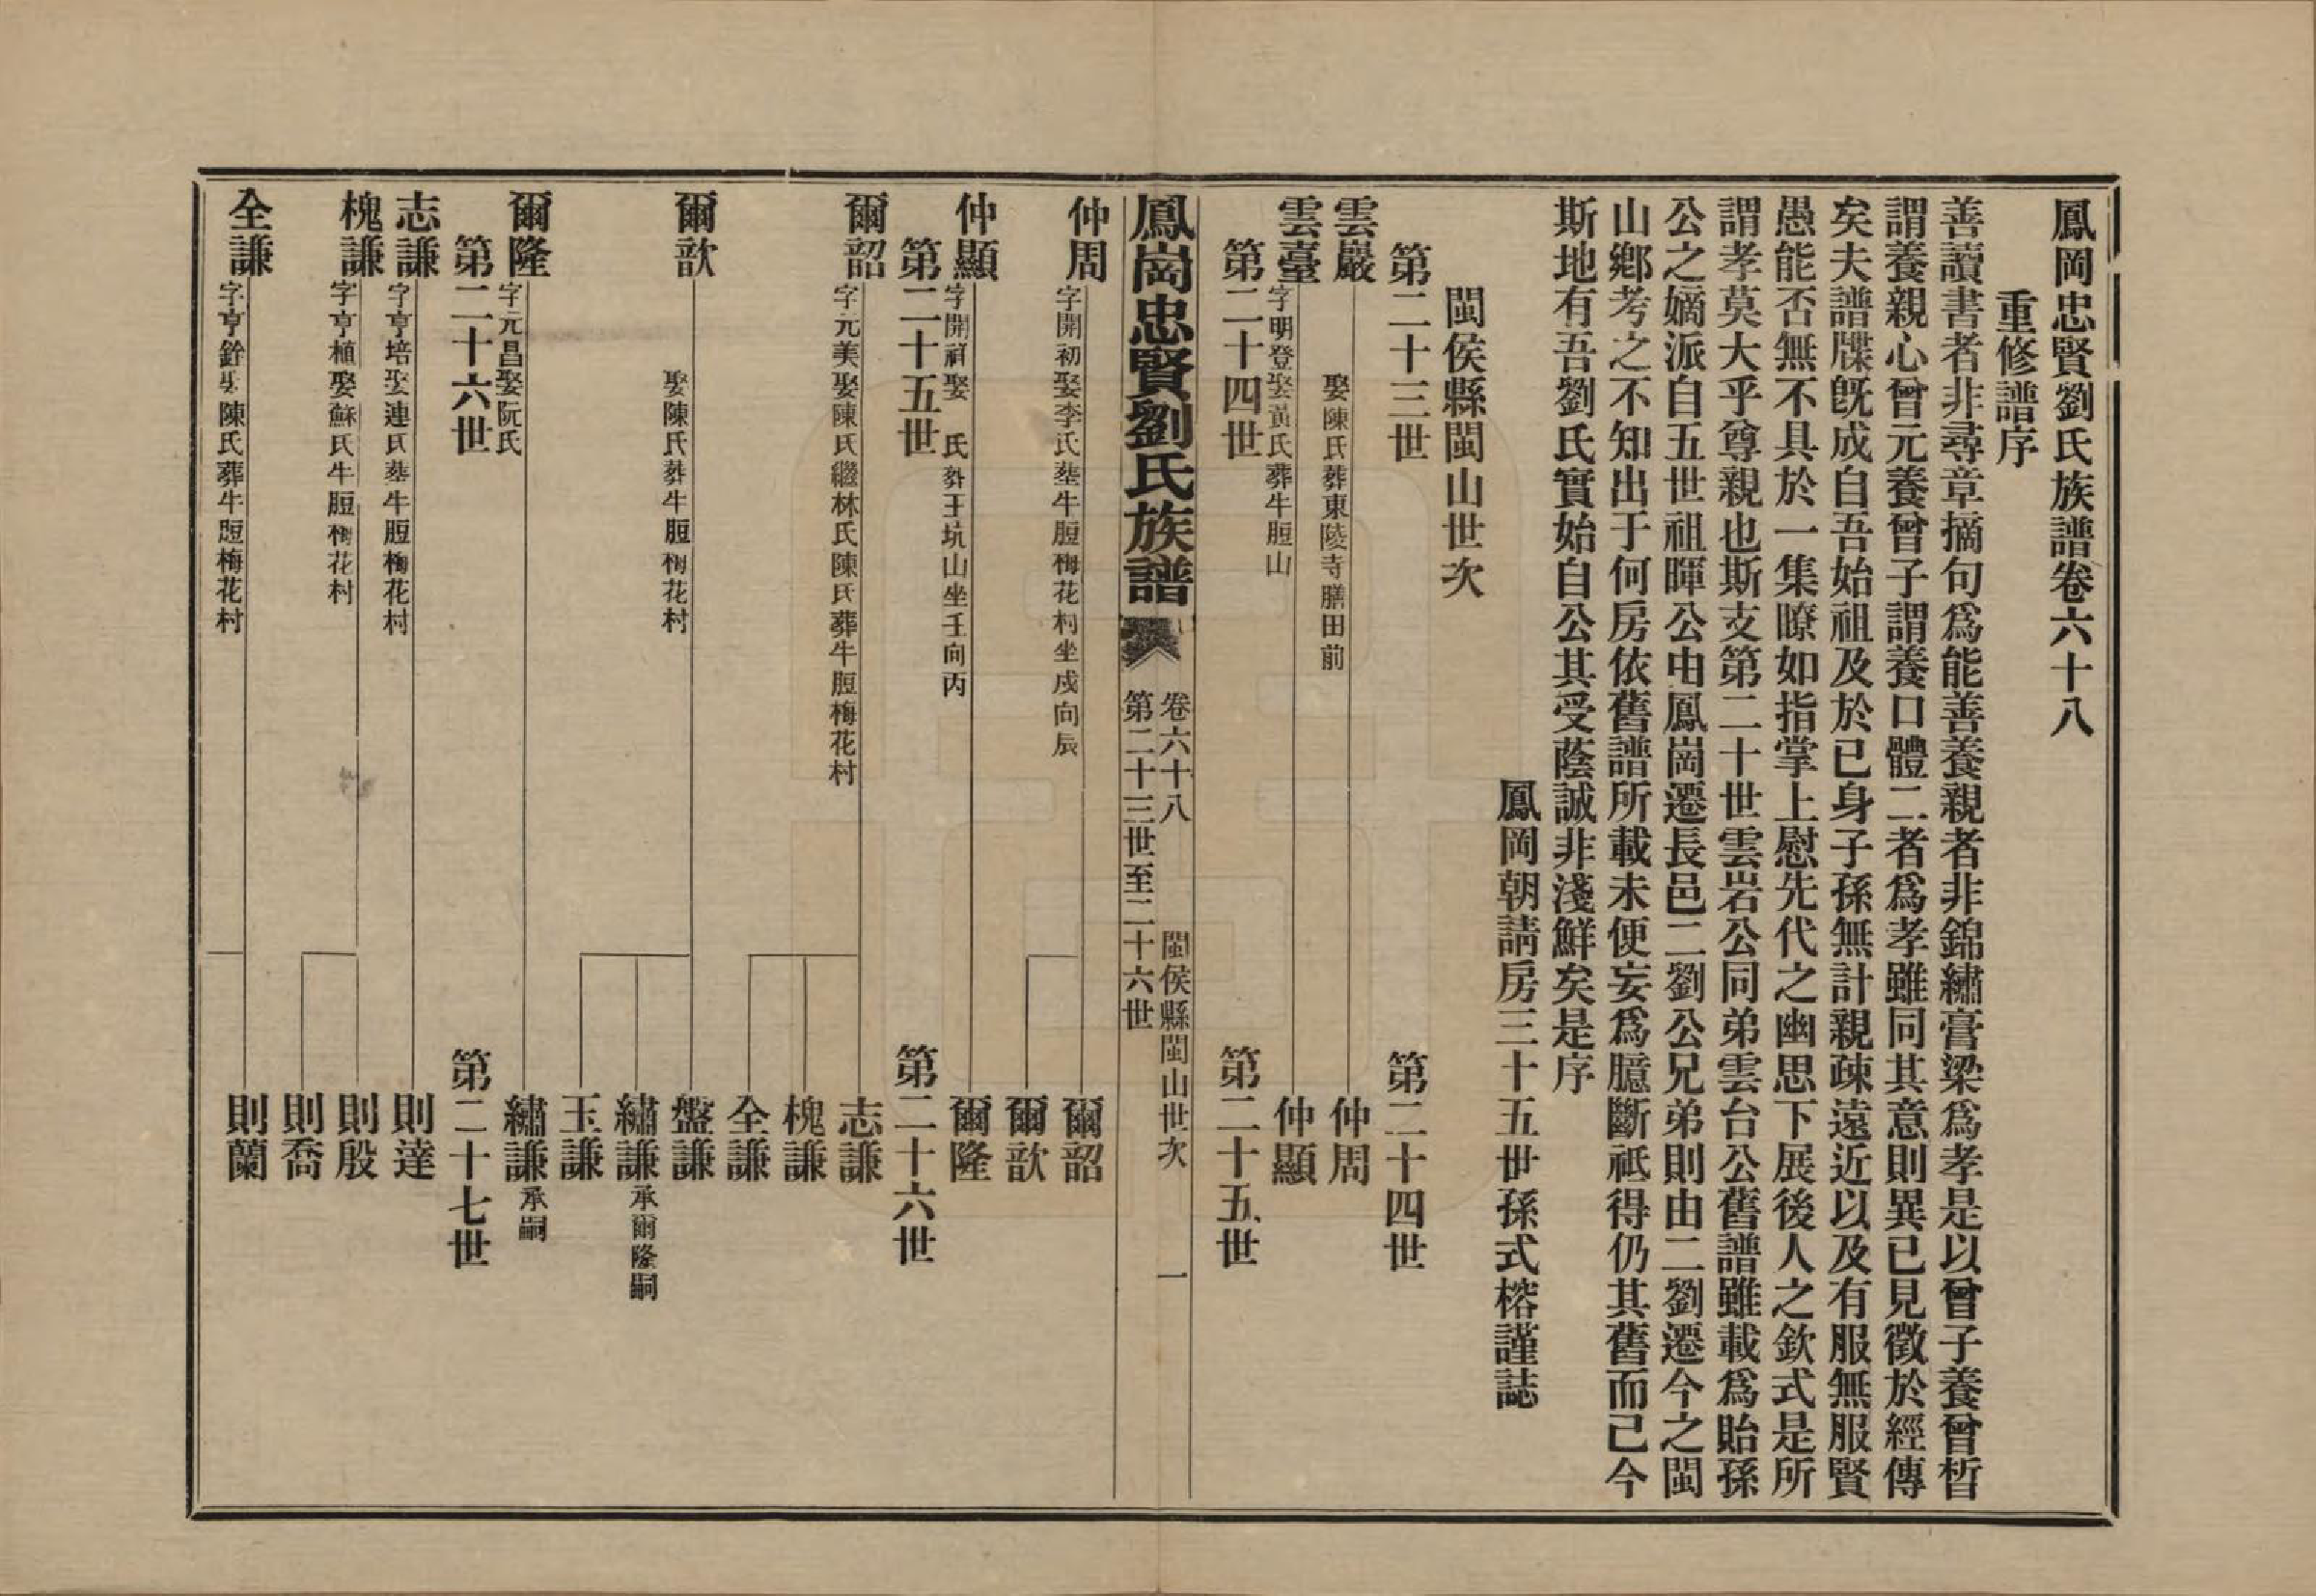 鳳岡忠賢劉氏族譜卷六十八
重修譜序
善讀書者非尋章摘句爲能善養親者非錦繡膏梁爲孝是以曾子養曾晳
謂養親心曾元養曾子謂養口體二者爲孝雖同其意則異已見徵於經傳
矣夫譜牒旣成自吾始祖及於已身子孫無計親疎遠近以及有服無服賢
愚能否無不具於一集瞭如指掌上慰先代之幽思下展後人之欽式是所
謂孝莫大乎尊親也斯支第二十世雲岩公同弟雲台公舊譜雖載爲貽孫
公之嫡派自五世祖暉公由鳳崗遷長邑二劉公兄弟則由二劉遷今之閩
山鄉考之不知出于何房依舊譜所載未便妄爲臆斷祗得仍其舊而已今
斯地有吾劉氏實始自公其受蔭誠非淺鮮矣是序
鳳岡朝請房三十五世孫式榕謹誌
閩侯縣閩山世次
第二十三世 第二十四世
雲巖 娶陳氏葬東陵寺膳田前 仲周
雲臺 字明登娶黃氏葬牛脰山 仲顯
第二十四世 第二十五世
鳳崗忠賢劉氏族譜 卷六十八 閩侯縣閩山世次 一
第二十三世至二十六世
仲周 字開初娶李氏葬牛脰梅花村坐戍向辰 爾韶
爾歆
仲顯 字開祥娶 氏葬王坑山坐壬向丙 爾隆
第二十五世 第二十六世
爾韶 字元美娶陳氏繼林氏陳氏葬牛脰梅花村 志謙
槐謙
全謙
爾歆 娶陳氏葬牛脰梅花村 盤謙
繡謙 承爾隆嗣
玉謙
爾隆 字元昌娶阮氏 繡謙 承嗣
第二十六世 第二十七世
志謙 字亨培娶連氏葬牛脰梅花村 則達
槐謙 字亨植娶蘇氏牛脰梅花村 則殷
則喬
全謙 字亨銓娶陳氏葬牛脰梅花村 則蘭